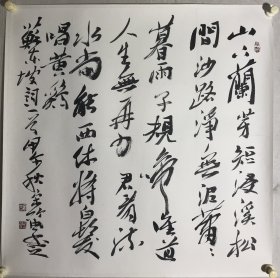 山下蘭芽短浸溪松
間沙路淨無泥蕭々
暮雨子規啼誰道
人生無再少君看流
水尚能西休將白髮
唱黃鷄
蘇東坡詞一首